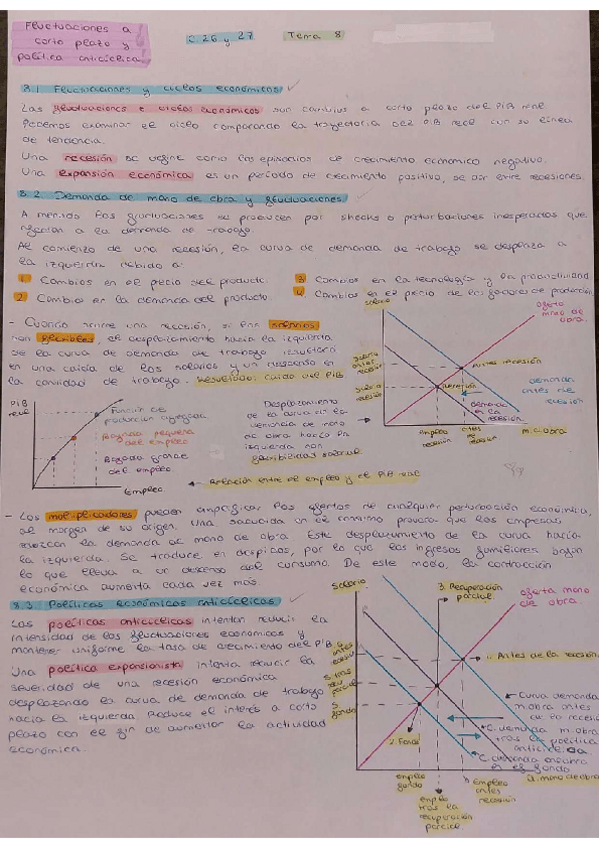 Fluctuaciones a
corto plazo y
política anticíclica.
C. 26 y 27
Tema 8
8.1 Fluctuaciones y ciclos económicos
Las fluctuaciones o ciclos económicos son cambios a corto plazo del PIB real
Podemos examinar el ciclo comparando la trayectoria del PIB real con su línea
de tendencia.
Una recesión se define como los episodios de crecimiento económico negativo.
Una expansión económica es un período de crecimiento positivo, se da entre recesiones.
8.2 Demanda de mano de obra y fluctuaciones
A menudo las fluctuaciones se producen por shocks o perturbaciones inesperadas que
afectan a la demanda de trabajo.
Al comienzo de una recesión, la curva de demanda de trabajo se desplaza a
la izquierda debido a:
1 Cambios en el precio del producto.
3 Cambios en la tecnología y la productividad
2 Cambio en la demanda del producto.
4 Cambios en el precio de los factores de producción
- Cuando ocurre una recesión, si los salarios
son flexibles, el desplazamiento hacia la izquierda
de la curva de demanda de trabajo resultará
en una caída de los salarios y un descenso en
la cantidad de trabajo. Resultado: caída del PIB
salario
oferta
mano de
obra.
salario
antes
recesión
salario
recesión
Antes recesión
Recesión
demanda
antes de
recesión
demanda
en la
recesión
empleo
recesión
empleo
antes de
recesión
m. obra
PIB
real
Función de
producción agregada
Bajada pequeña
del empleo
Bajada grande
del empleo
Empleo
Desplazamiento
de la curva de la
demanda de mano
de obra hacia la
izquierda con
flexibilidad salarial
Relación entre el empleo y el PIB real
- Los multiplicadores pueden amplificar los efectos de cualquier perturbación económica,
al margen de su origen. Una sacudida en el consumo provoca que las empresas
reduzcan la demanda de mano de obra. Este desplazamiento de la curva hacia
la izquierda. Se traduce en despidos, por lo que los ingresos familiares bajan
lo que lleva a un descenso del consumo. De este modo, la contracción
económica aumenta cada vez más.
8.3 Políticas económicas anticíclicas
Las políticas anticíclicas intentan reducir la
intensidad de las fluctuaciones económicas y
mantener uniforme la tasa de crecimiento del PIB.
Una política expansionista intenta reducir la
severidad de una recesión económica
desplazando la curva de demanda de trabajo
hacia la izquierda. Reduce el interés a corto
plazo con el fin de aumentar la actividad
económica.
Salario
3. Recuperación
parcial.
oferta mano
de obra.
S. antes
recesión
S. tras
recup
parcial
S.
fondo
1. Antes de la recesión.
Curva demanda
m. obra antes
de la recesión
C. demanda m. obra
tras la política
anticíclica.
C. demanda m. obra
en el fondo
2. Fondo
empleo
fondo
empleo
antes
recesión
Q. mano de obra
empleo
tras la
recuperación
parcial